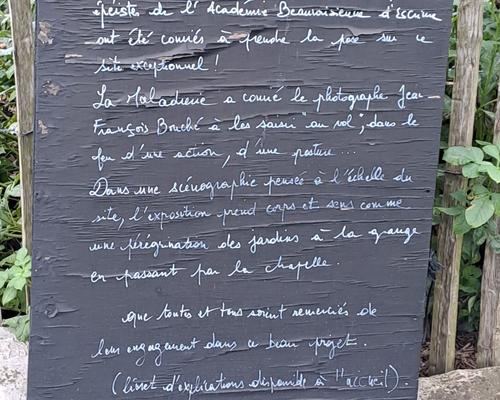 épéiste de l'Académie Beauvaisienne d'Escrime
ont été conviés à prendre la pose sur ce
site exceptionnel !
La Maladrerie a convié le photographe Jean-
François Bouché à les saisir "au vol", dans le
feu d'une action, d'une posture...
Dans une scénographie pensée à l'échelle du
site, l'exposition prend corps et sens comme
une pérégrination des jardins à la grange
en passant par la chapelle.
que toutes et tous soient remerciés de
leur engagement dans ce beau projet.
(livret d'explications disponible à l'accueil).